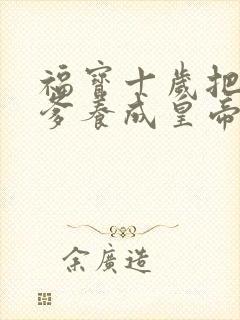 福寶十歲把
爹養成皇帝
余廣造